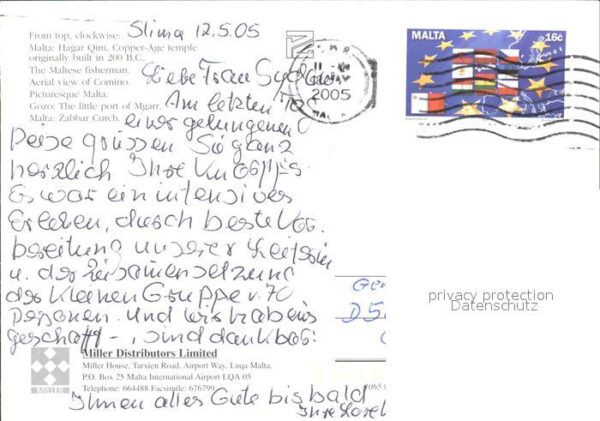 Slima 12.5.05
From top, clockwise:
Malta: Hagar Qim, Copper-Age temple
originally built in 200 B.C.
The Maltese fisherman.
Aerial view of Comino.
Picturesque Malta.
Gozo: The little port of Mgarr.
Malta: Zabbar Curch.
Liebe Frau
Am letzten Tag
einer gelungenen
Reise grüssen Sie ganz
herzlich Ihre
Es war ein intensives
Erleben, durch beste Vor
bereitung unserer Leiterin
u. der Zusammensetzung
der kleinen Gruppe v. 10
Personen. Und wir haben's
geschafft - , sind dankbar!
Ihnen alles Gute bis bald
Ihre
Miller Distributors Limited
Miller House, Tarxien Road, Airport Way, Luqa Malta,
P.O. Box 25 Malta International Airport LQA 05
Telephone: 664488 Facsimile: 676799
MILLER
2005
MALTA 16c
D5
privacy protection
Datenschutz